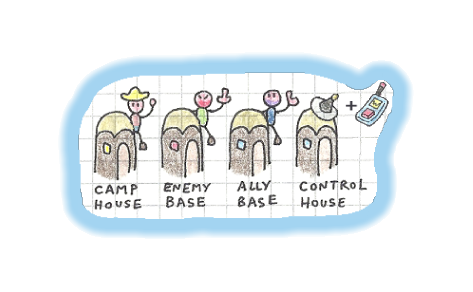 CAMP HOUSE
ENEMY BASE
ALLY BASE
CONTROL HOUSE
+